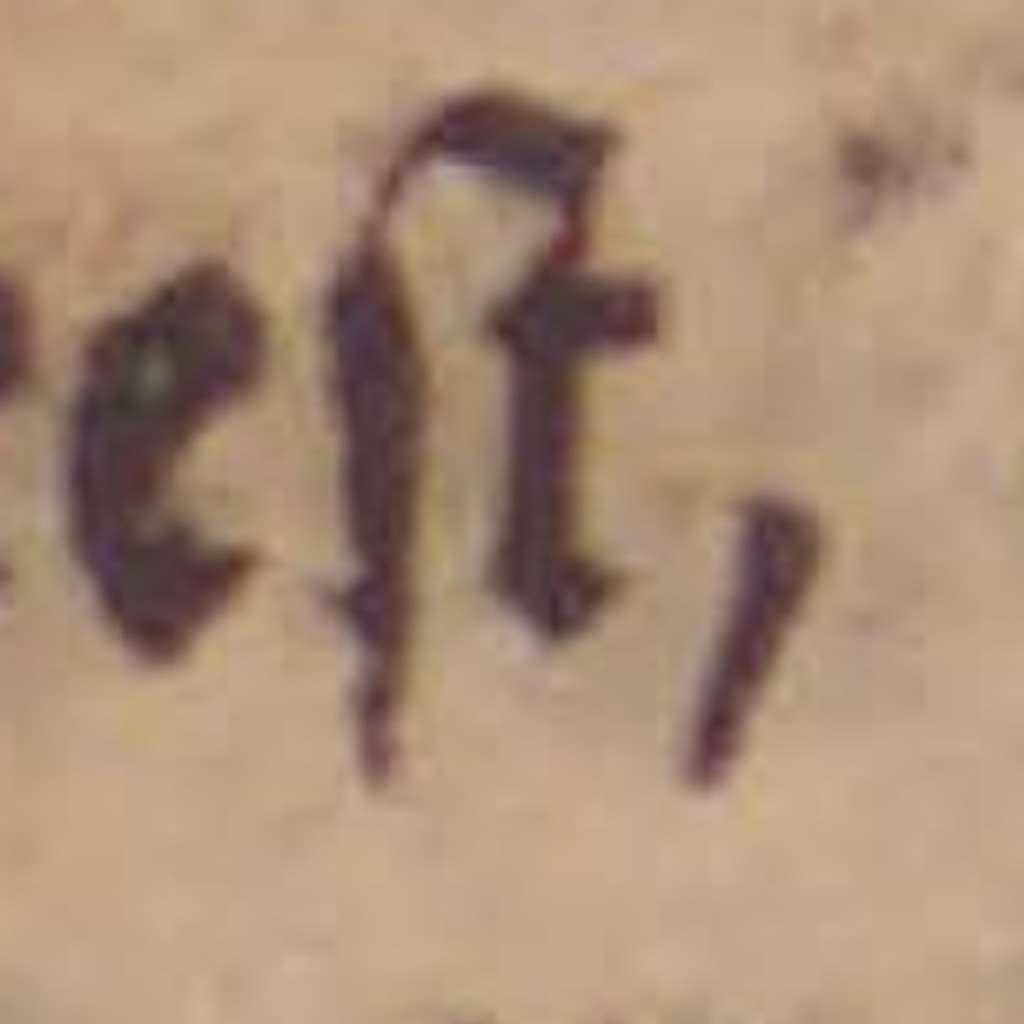 eſt,